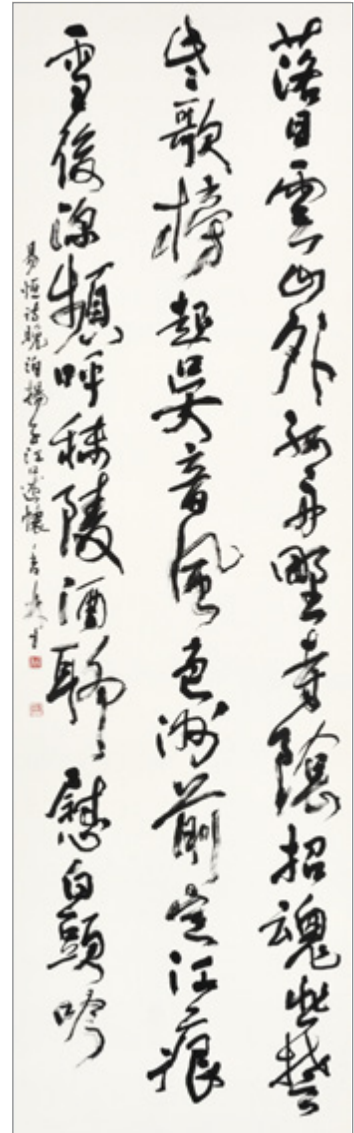 落日雲山外孤舟野寺陰招魂悲楚
些歌榜起吳音風色洲前定江痕
雪後深頻呼秣陵酒聊慰白頭吟
易恒詩晚泊揚子江口懷